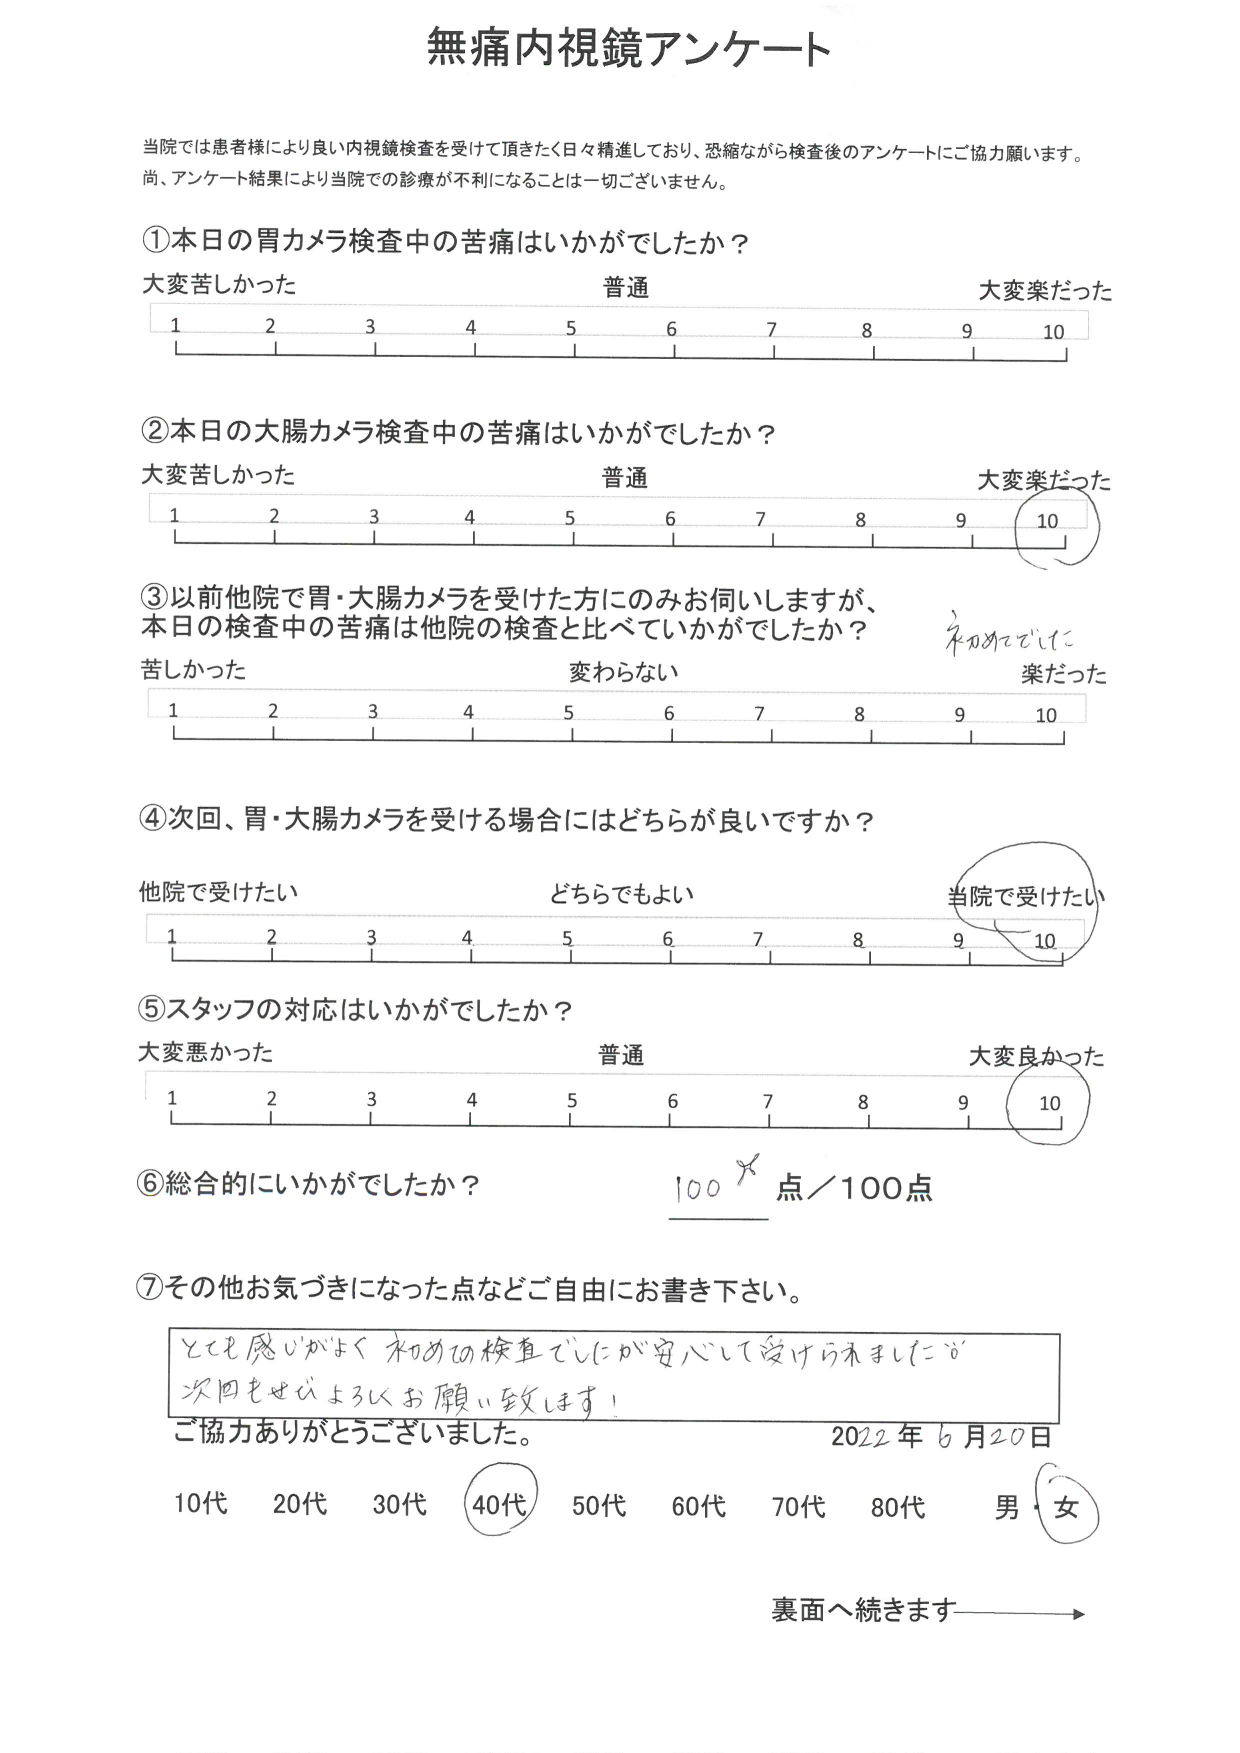 無痛内視鏡アンケート
当院では患者様により良い内視鏡検査を受けて頂きたく日々精進しており、恐縮ながら検査後のアンケートにご協力願います。
尚、アンケート結果により当院での診療が不利になることは一切ございません。
①本日の胃カメラ検査中の苦痛はいかがでしたか？
大変苦しかった 普通 大変楽だった
1 2 3 4 5 6 7 8 9 10
②本日の大腸カメラ検査中の苦痛はいかがでしたか？
大変苦しかった 普通 大変楽だった
1 2 3 4 5 6 7 8 9 10
③以前他院で胃・大腸カメラを受けた方にのみお伺いしますが、
本日の検査中の苦痛は他院の検査と比べていかがでしたか？ 初めてでした
苦しかった 変わらない 楽だった
1 2 3 4 5 6 7 8 9 10
④次回、胃・大腸カメラを受ける場合にはどちらが良いですか？
他院で受けたい どちらでもよい 当院で受けたい
1 2 3 4 5 6 7 8 9 10
⑤スタッフの対応はいかがでしたか？
大変悪かった 普通 大変良かった
1 2 3 4 5 6 7 8 9 10
⑥総合的にいかがでしたか？ 100 点／100点
⑦その他お気づきになった点などご自由にお書き下さい。
とても感じがよく 初めての検査でしたが安心して受けられました
次回もぜひよろしくお願い致します！
ご協力ありがとうございました。 2022年6月20日
10代 20代 30代 40代 50代 60代 70代 80代 男・女
裏面へ続きます